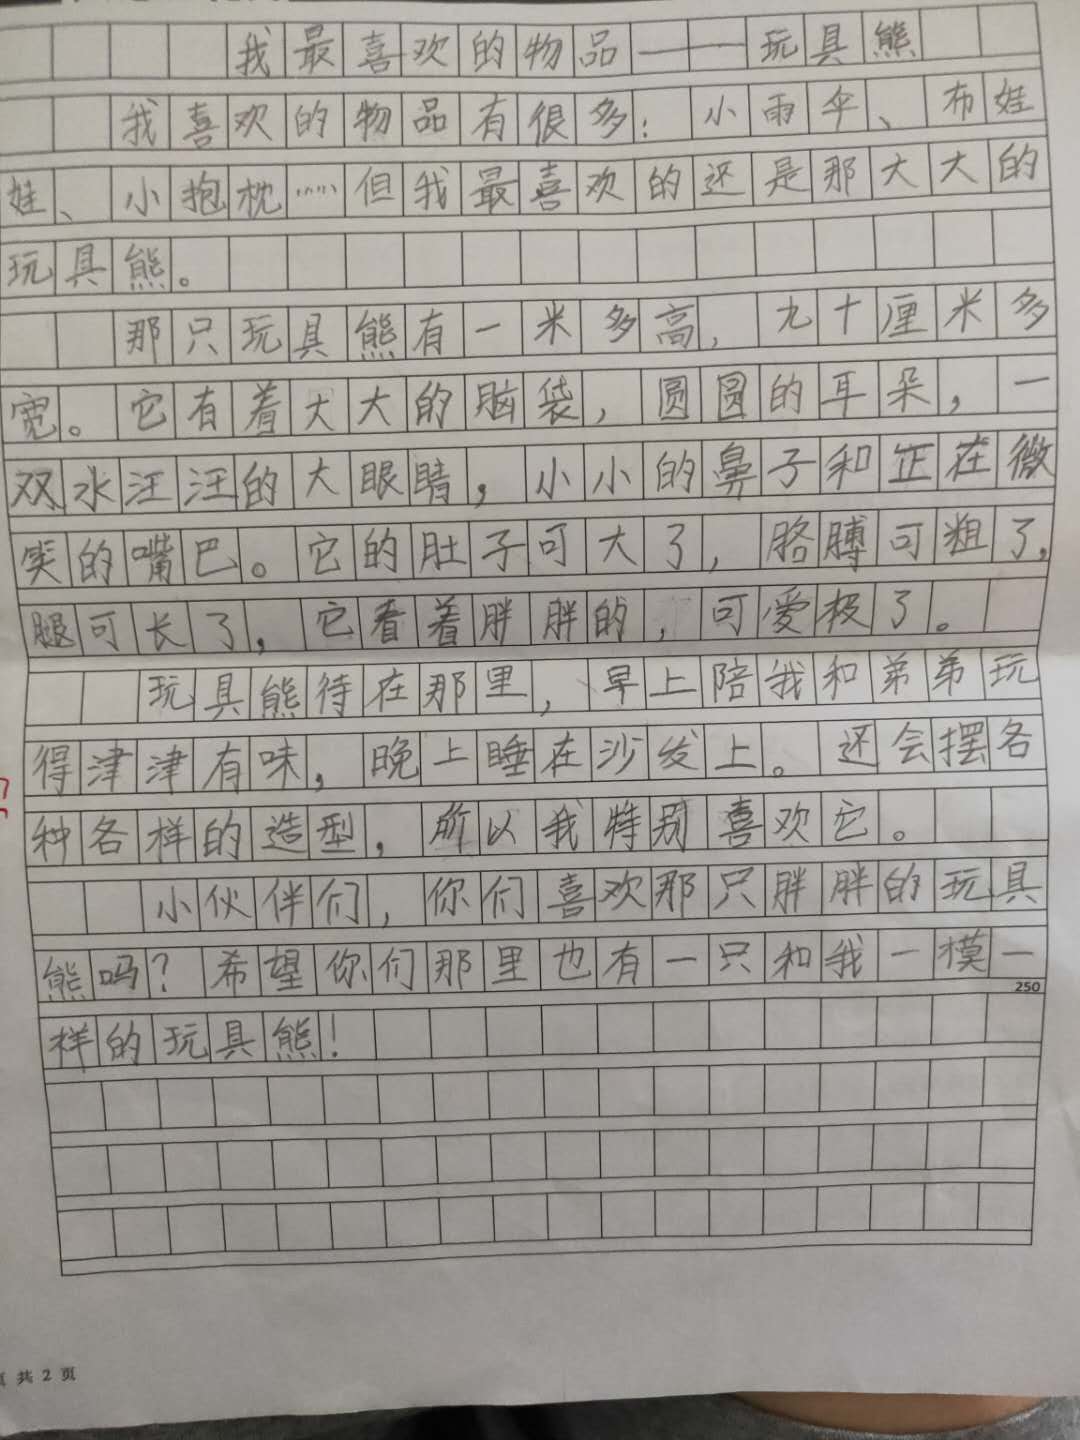 我最喜欢的物品——玩具熊
我喜欢的物品有很多：小雨伞、布娃
娃、小抱枕……但我最喜欢的还是那大大的
玩具熊。
那只玩具熊有一米多高，九十厘米多
宽。它有着大大的脑袋，圆圆的耳朵，一
双水汪汪的大眼睛，小小的鼻子和正在微
笑的嘴巴。它的肚子可大了，胳膊可粗了，
腿可长了，它看着胖胖的，可爱极了。
玩具熊待在那里，早上陪我和弟弟玩
得津津有味，晚上睡在沙发上。还会摆各
种各样的造型，所以我特别喜欢它。
小伙伴们，你们喜欢那只胖胖的玩具
熊吗？希望你们那里也有一只和我一模一
250
样的玩具熊！
共2页